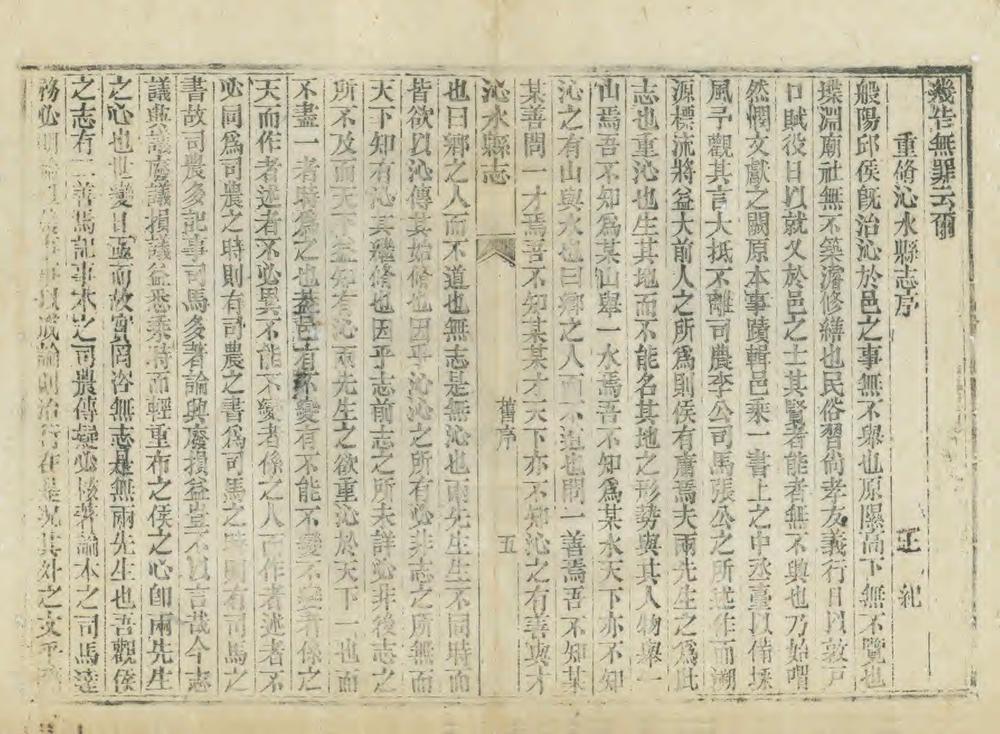 幾告無罪云爾
重脩沁水縣志序 王紀
般陽邱侯旣治沁於邑之事無不舉也原隰高下無不覽也
璞淵廟社無不築濬修繕也民俗習尙孝友義行日以敦戸
口賦役日以就乂於邑之士其賢者能者無不與也乃始喟
然憫文獻之闕原本事蹟輯邑乘一書上之中丞臺以備採
風予觀其言大抵不離司農李公司馬張公之所述作而溯
源標流將益大前人之所爲則侯有庸焉夫兩先生之爲此
志也重沁也生其地而不能名其地之形勢與其人物舉一
山焉吾不知爲某山舉一水焉吾不知爲某水天下亦不知
沁之有山與水也曰鄉之人而不道也問一善焉吾不知某
某善問一才焉吾不知某某才天下亦不知沁之有善與才
沁水縣志 舊序 五
也曰鄉之人而不道也無志是無沁也兩先生生不同時而
皆欲以沁傳其始脩也因乎沁沁之所有必非志之所無而
天下知有沁其繼脩也因乎志前志之所未詳必非後志之
所不及而天下益知有沁兩先生之欲重沁於天下一也而
不盡一者時爲之也蓋邑有不變有不能不變不變者係之
天而作者述者不必異不能不變者係之人而作者述者不
必同爲司農之時則有司農之書爲司馬之時則有司馬之
書故司農多記事司馬多著論與廢損益豈不以言哉今志
議興議廢議損議益悉乘時而輕重布之侯之心卽兩先生
之心也世變日亟而故實罔洛無志是無兩先生也吾觀侯
之志有二善焉記事本之司農傳變必核著論本之司馬達
務必明論以成論則治行在是況其外之文乎